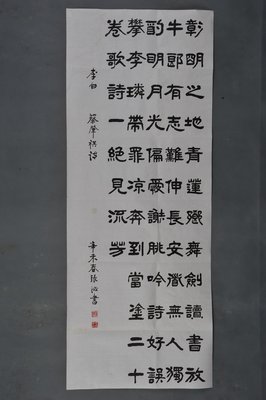 彰明之地青蓮鄉舞劍讀書放
牛郎有志難伸長安歲無人獨
酌明月光偏厥謝朓吟詩好誤
攀李璘帶罪凉奔到當塗二十
卷歌詩一絕見流芳
李白 蔡聲詩
辛未春張沁書